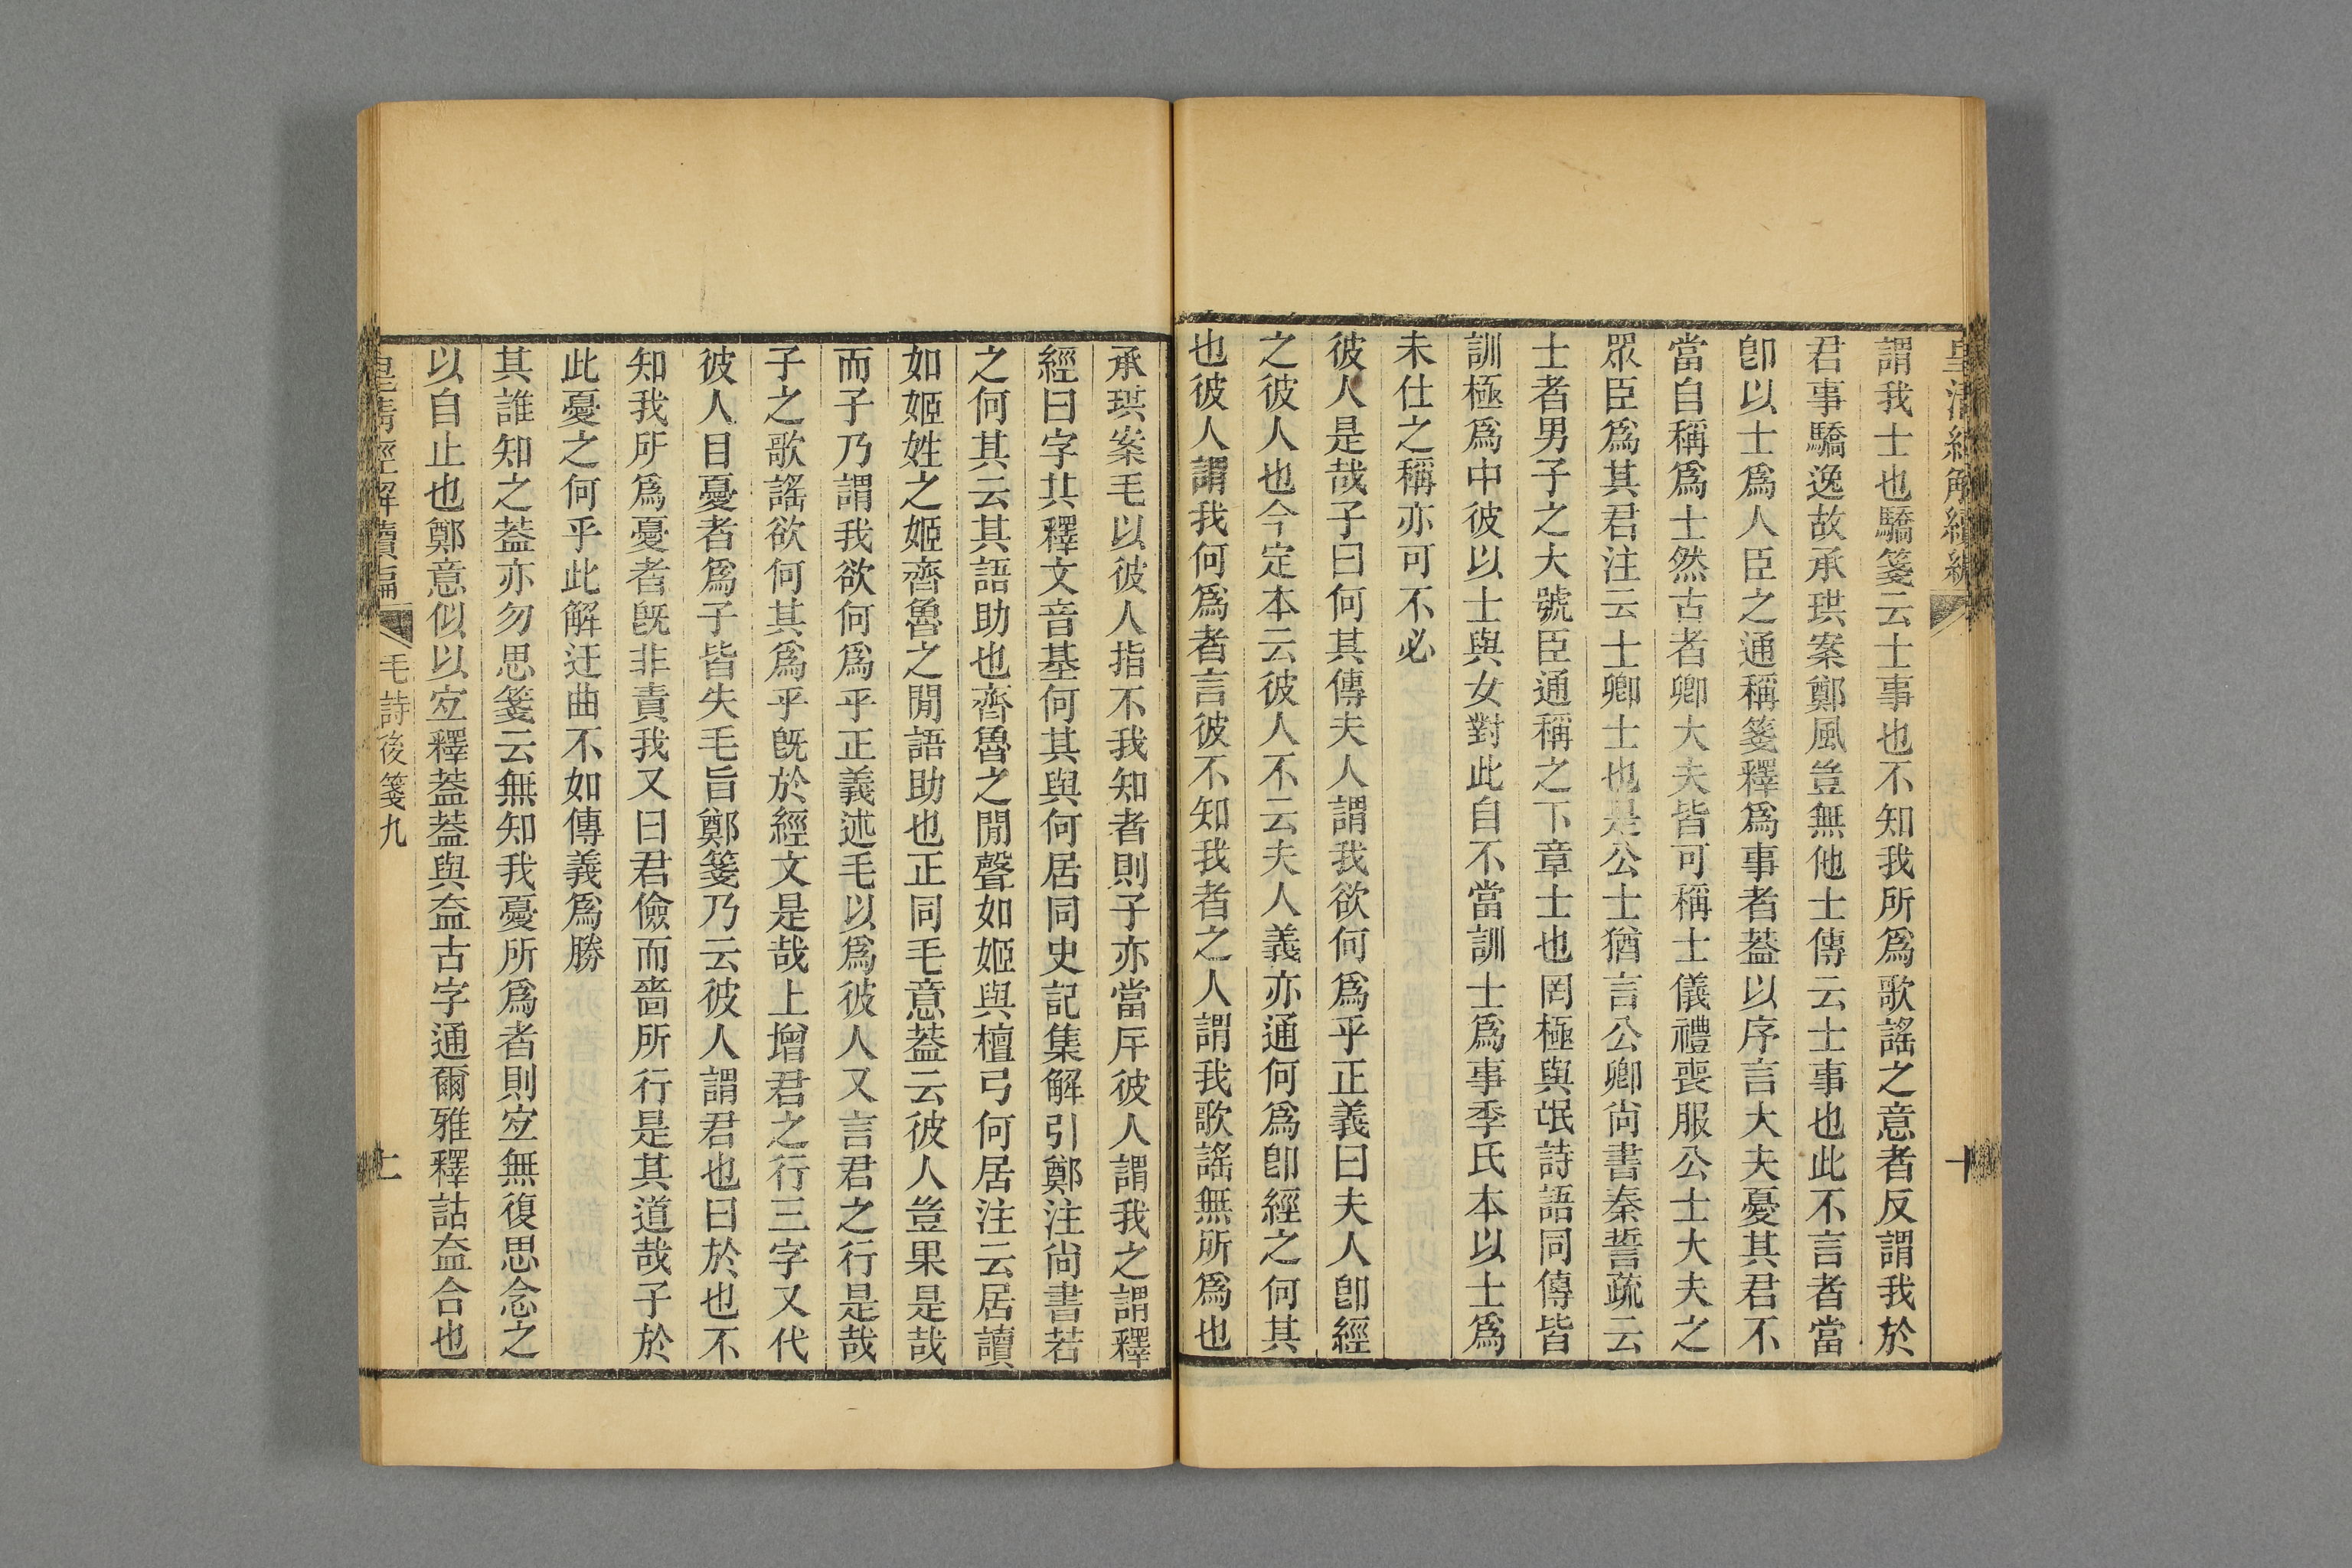 皇清經解續編
十
謂我士也驕箋云士事也不知我所爲歌謠之意者反謂我於
君事驕逸故承珙案鄭風豈無他士傳云士事也此不言者當
卽以士爲人臣之通稱箋釋爲事者葢以序言大夫憂其君不
當自稱爲士然古者卿大夫皆可稱士儀禮喪服公士大夫之
眾臣爲其君注云士卿士也是公士猶言公卿尙書秦誓疏云
士者男子之大號臣通稱之下章士也罔極與氓詩語同傳皆
訓極爲中彼以士與女對此自不當訓士爲事季氏本以士爲
未仕之稱亦可不必
彼人是哉子曰何其傳夫人謂我欲何爲乎正義曰夫人卽經
之彼人也今定本云彼人不云夫人義亦通何爲卽經之何其
也彼人謂我何爲者言彼不知我者之人謂我歌謠無所爲也
承珙案毛以彼人指不我知者則子亦當斥彼人謂我之謂釋
經曰字其釋文音基何其與何居同史記集解引鄭注尙書若
之何其云其語助也齊魯之閒聲如姬與檀弓何居注云居讀
如姬姓之姬齊魯之閒語助也正同毛意葢云彼人豈果是哉
而子乃謂我欲何爲乎正義述毛以爲彼人又言君之行是哉
子之歌謠欲何其爲乎旣於經文是哉上增君之行三字又代
彼人目憂者爲子皆失毛旨鄭箋乃云彼人謂君也曰於也不
知我所爲憂者旣非責我又曰君儉而嗇所行是其道哉子於
此憂之何乎此解迂曲不如傳義爲勝
其誰知之葢亦勿思箋云無知我憂所爲者則宐無復思念之
以自止也鄭意似以宐釋葢葢與盇古字通爾雅釋詁盇合也
皇淸經解續編
毛詩後箋九